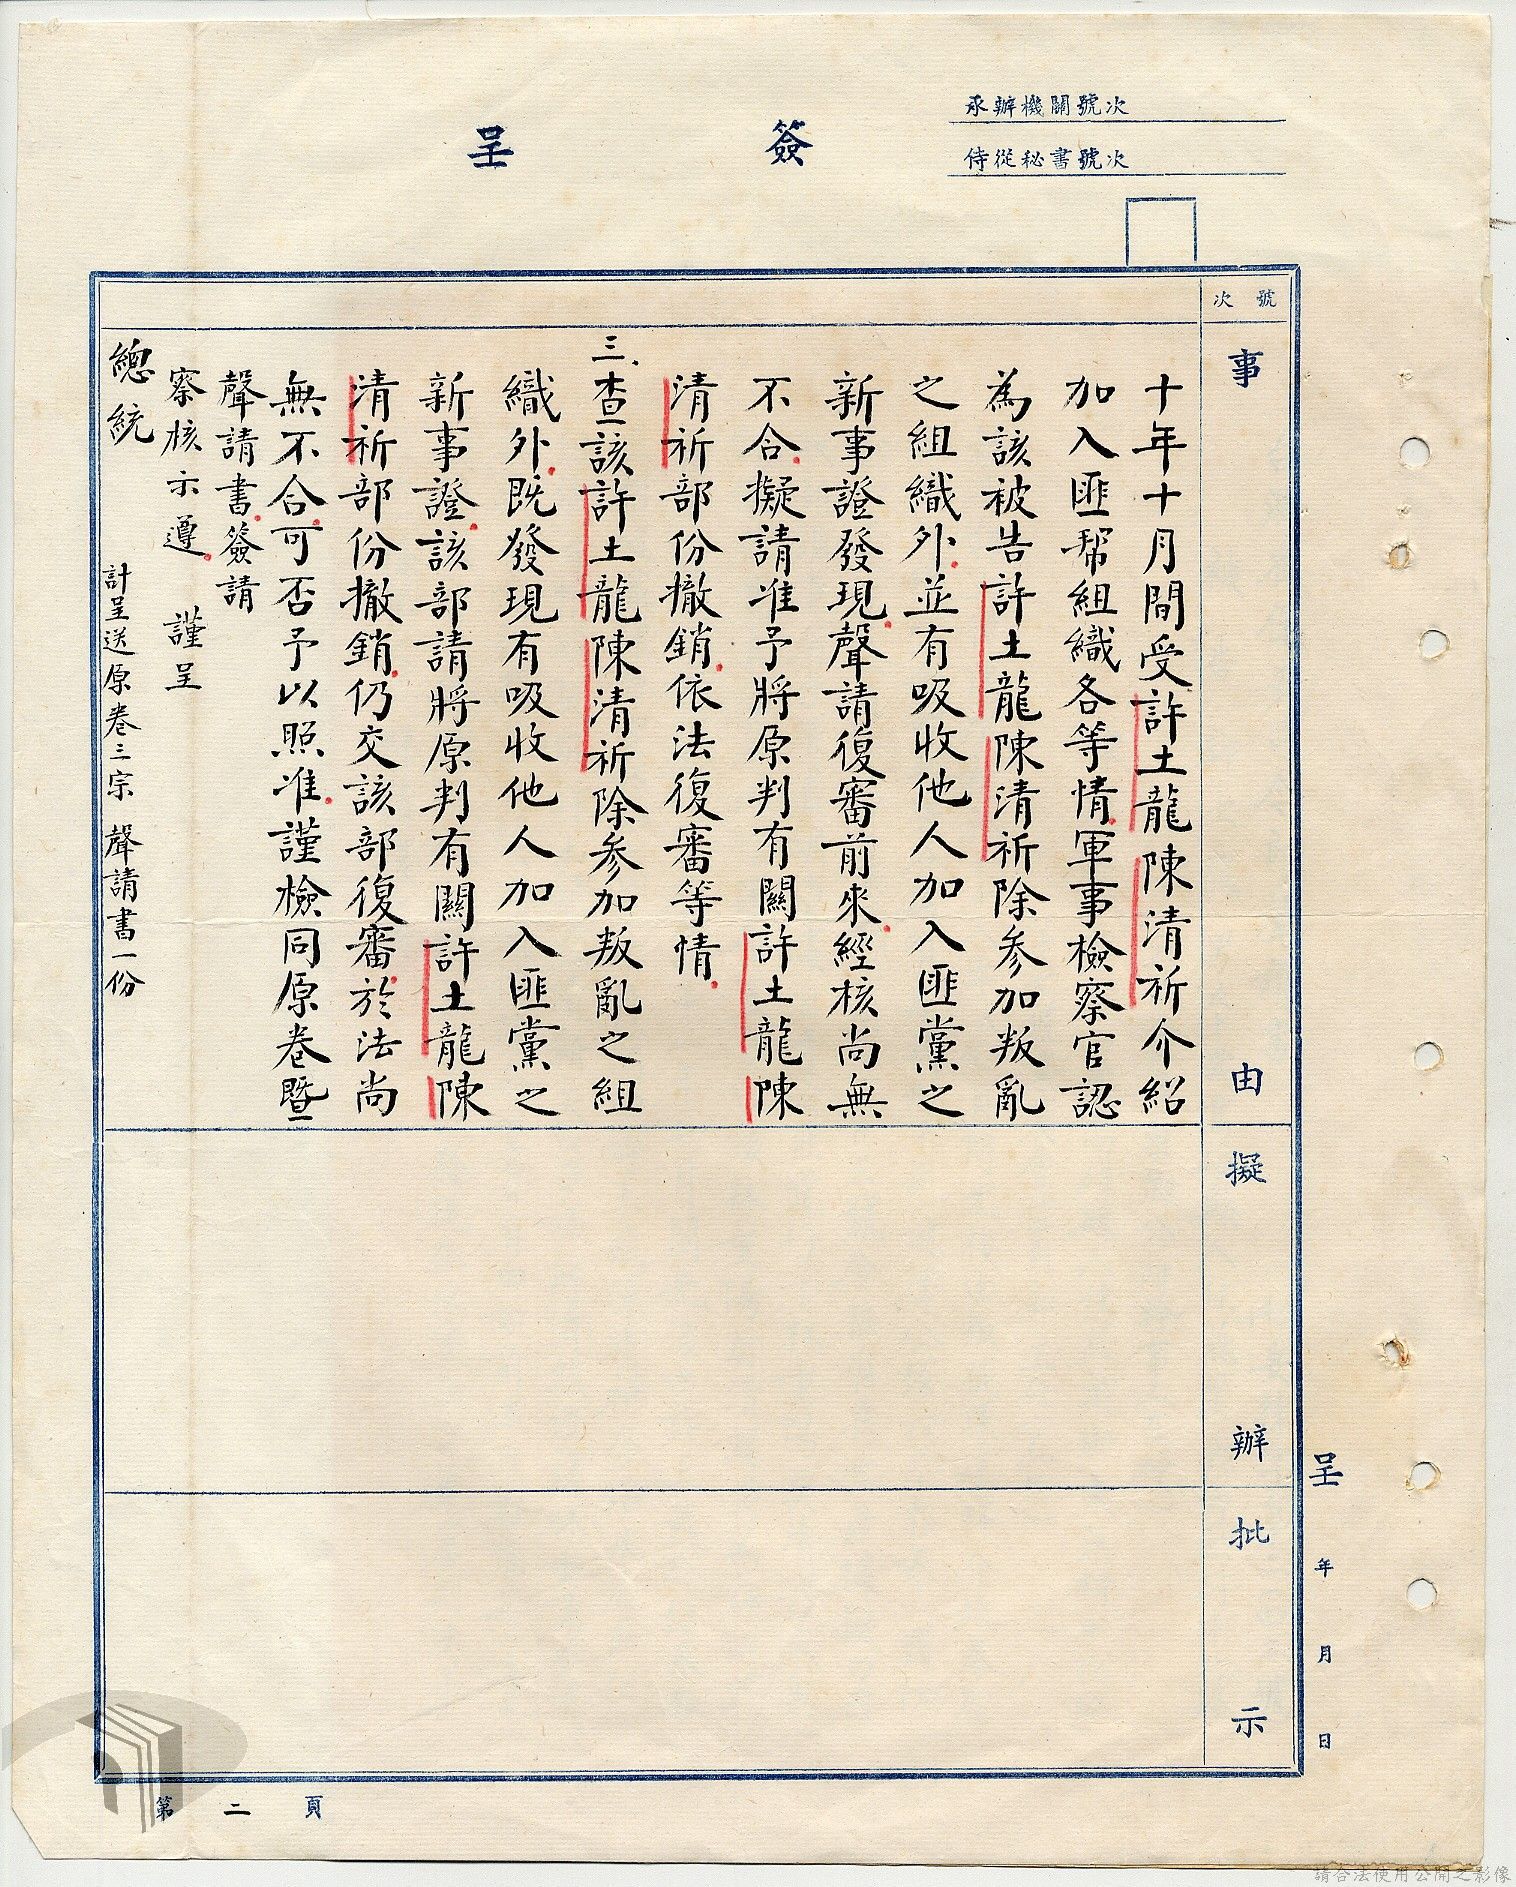 承辦機關號次
侍從秘書號次
簽呈
號次
事由
擬辦
批示
十年十月間受許土龍陳清祈介紹
加入匪幫組織各等情軍事檢察官認
為該被告許土龍陳清祈除參加叛亂
之組織外並有吸收他人加入匪黨之
新事證發現聲請復審前來經核尚無
不合擬請准予將原判有關許土龍陳
清祈部份撤銷依法復審等情
三、查該許土龍陳清祈除參加叛亂之組
織外既發現有吸收他人加入匪黨之
新事證該部請將原判有關許土龍陳
清祈部份撤銷仍交該部復審於法尚
無不合可否予以照准謹檢同原卷暨
聲請書簽請
察核示遵 謹呈
總統 計呈送原卷三宗 聲請書一份
呈 年 月 日
第二頁
請合法使用公開之影像